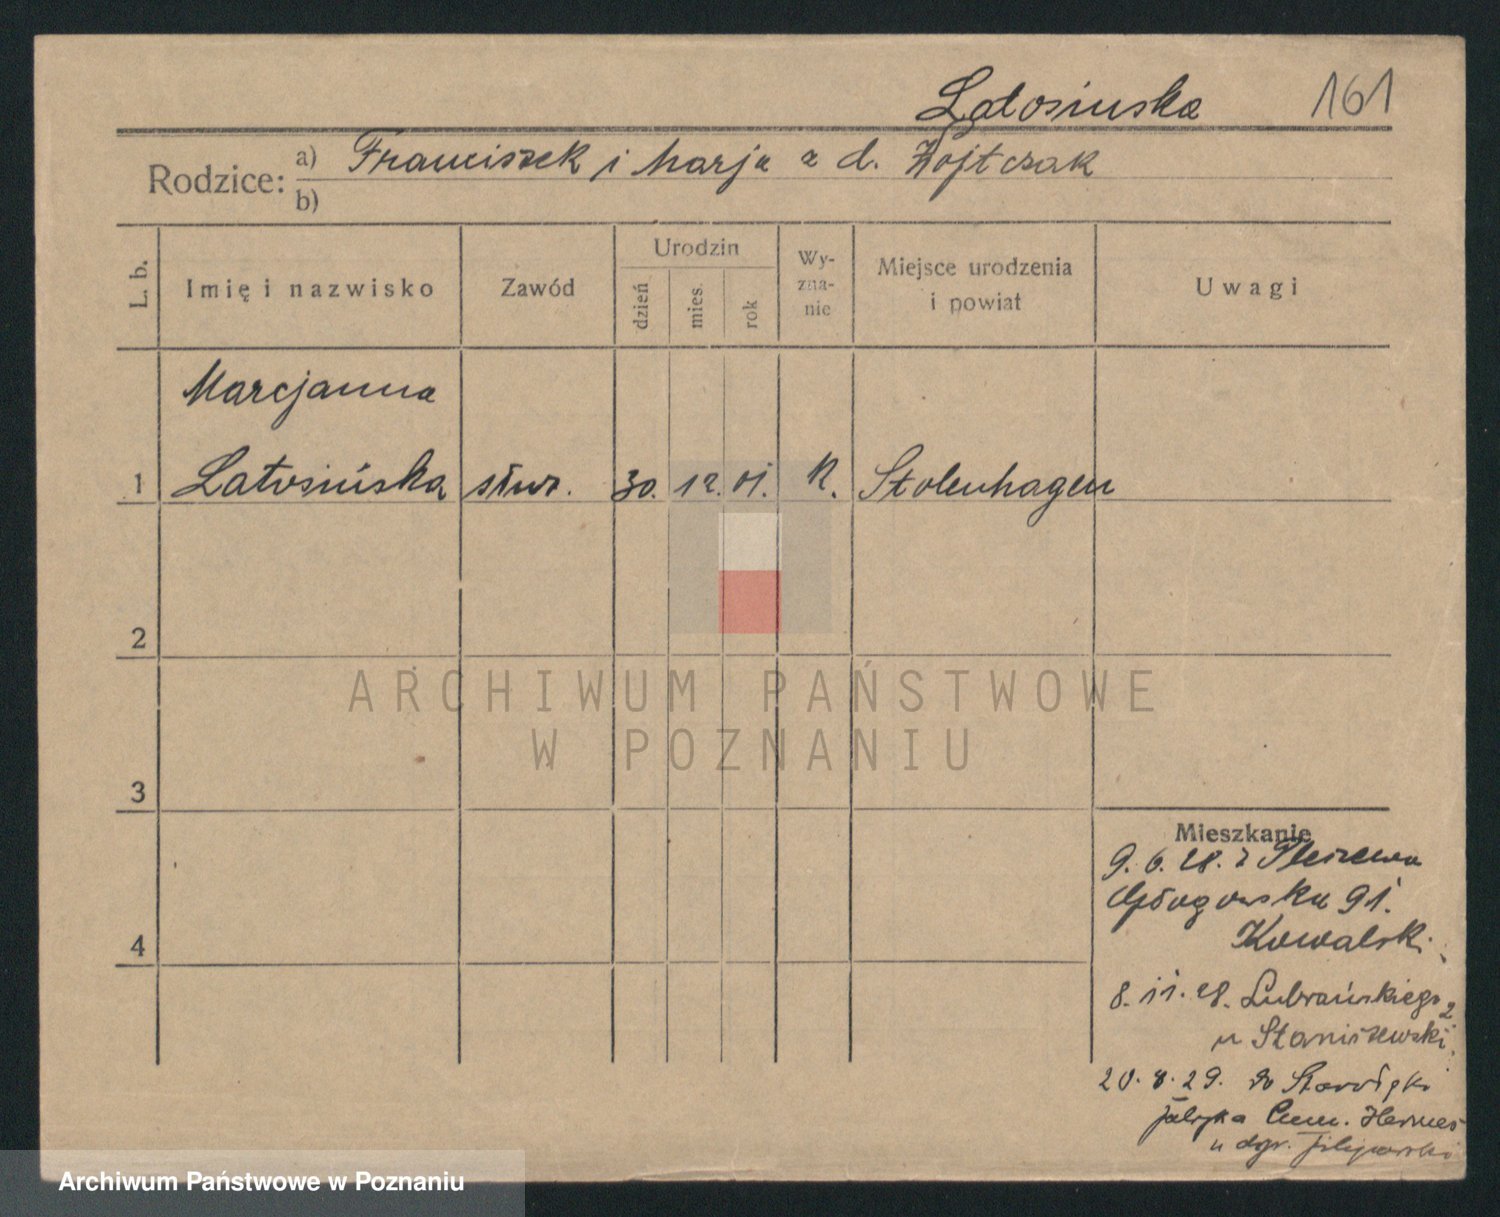 Latosinska 161
Rodzice: a) Franciszek i Marja z d. Wojtczak
b)
L. b. Imię i nazwisko Zawód Urodzin dzień mies. rok Wy-zna-nie Miejsce urodzenia i powiat Uwagi
Marcjanna
1 Latosińska służ. 30. 12. 01. K. Stolenhagen
2
ARCHIWUM PAŃSTWOWE
W POZNANIU
3
Mieszkanie
9. 6. 28. z Pleszewa
Głogowska 91.
Kowalski
4
8. 11. 28. Lubrańskiego 2
u Staniszewski
20. 8. 29. do
fabryka Hermes
u
Archiwum Państwowe w Poznaniu